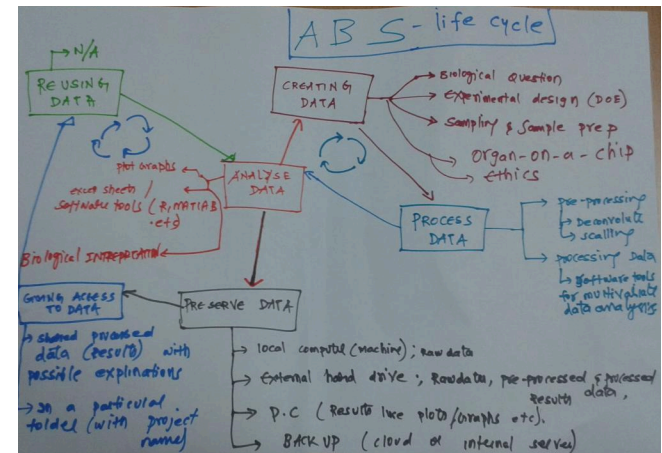 ABS - life cycle
N/A
REUSING
DATA
CREATING
DATA
Biological Question
Experimental design (DOE)
Sampling & Sample prep
Organ-on-a-chip
ethics
plot graphs
excel sheets /
Software tools (R, MATLAB
etc)
Biological INTERPRETATION
ANALYSE
DATA
PROCESS
DATA
pre-processing
Deconvolute
scalling
processing Data
software tools
for multivaliate
data analysis
GOING ACCESS
TO DATA
shared processed
data (results) with
possible explinations
In a particular
folder (with project
name)
PRESERVE DATA
local computer (machine); Raw data
External hard drive :, Rawdata, pre-processed & processed
data,
Results
P.C (Results like plots/Graphs etc).
BACK UP (cloud or internal server)